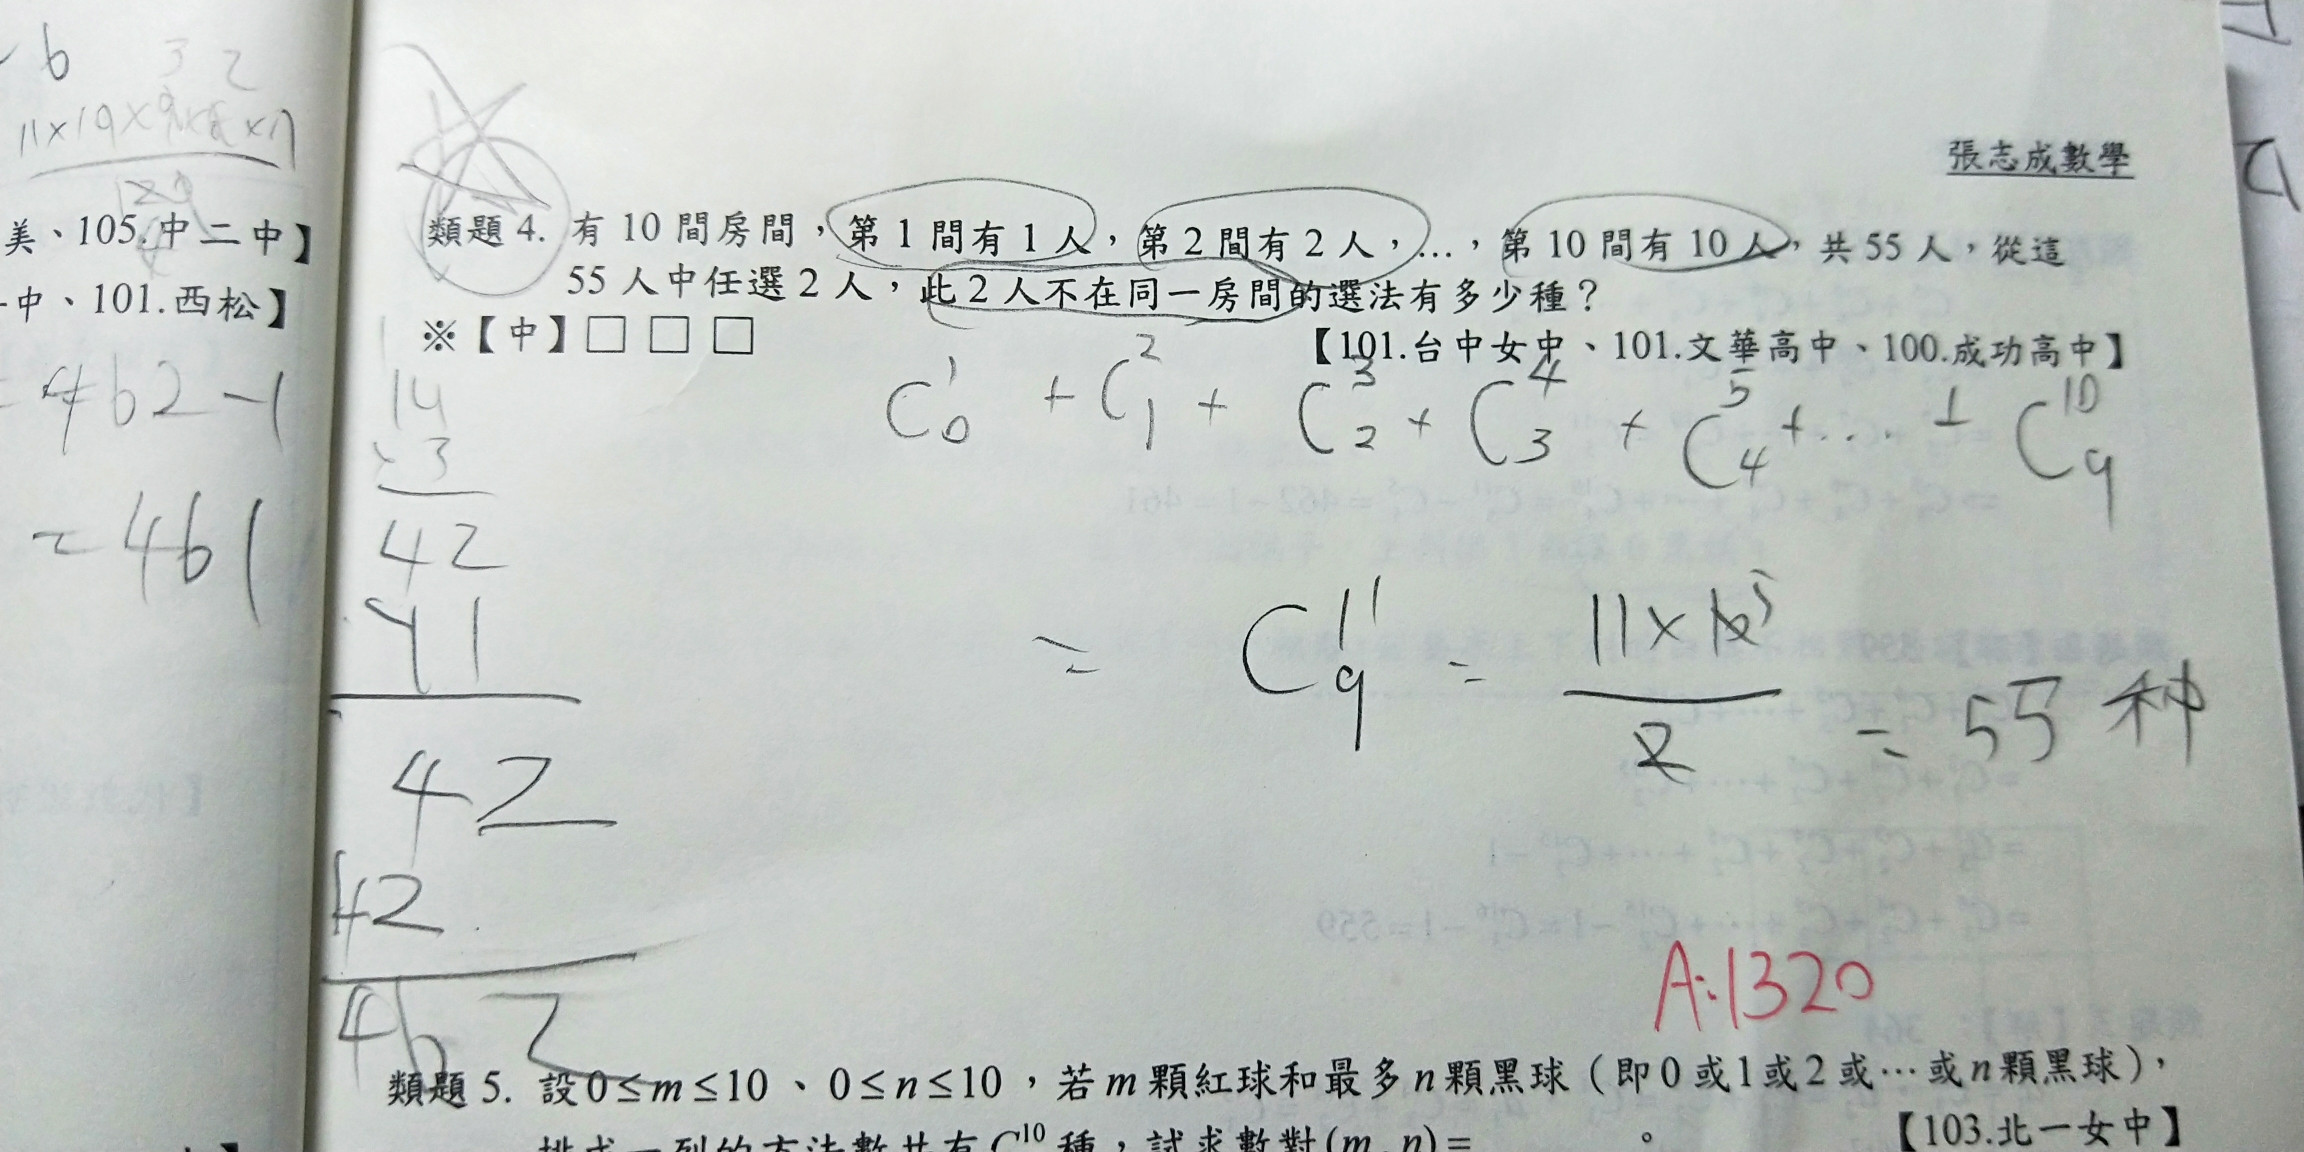 張志成數學
類題 4. 有 10 間房間，第 1 間有 1 人，第 2 間有 2 人，…，第 10 間有 10 人，共 55 人，從這
55 人中任選 2 人，此 2 人不在同一房間的選法有多少種？
※【中】□ □ □
【101.台中女中、101.文華高中、100.成功高中】
C¹₀ + C²₁ + C³₂ + C⁴₃ + C⁵₄ + ... + C¹⁰₉
= C¹¹₉ = 11×10 5 / 2 = 55 种
A:1320
類題 5. 設 0≤m≤10、0≤n≤10，若 m 顆紅球和最多 n 顆黑球（即 0 或 1 或 2 或…或 n 顆黑球），
【103.北一女中】
美、105.中二中】
中、101.西松】
= 462-1
= 461
14
3
42
41
42
42
462